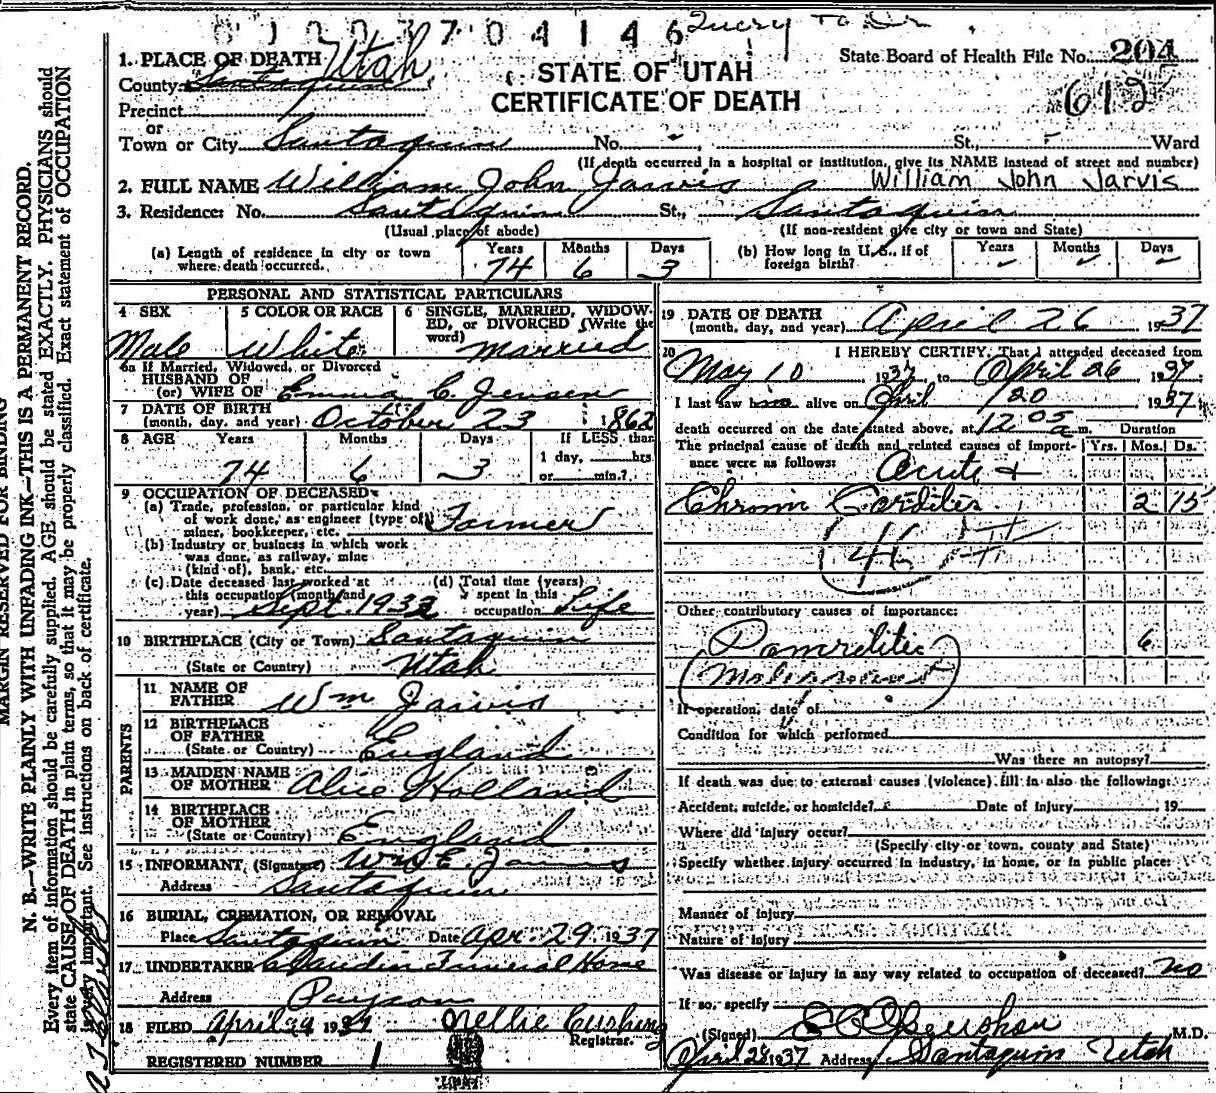 0 1 2 0 3 7 0 4 1 4 6 Query To Dr
1. PLACE OF DEATH Utah
County Santaquin
Precinct
or
Town or City Santaquin No. - St., - Ward
(If death occurred in a hospital or institution, give its NAME instead of street and number)
STATE OF UTAH
CERTIFICATE OF DEATH
State Board of Health File No. 204
612
2. FULL NAME William John Jarvis William John Jarvis
3. Residence: No. Santaquin St., Santaquin
(Usual place of abode) (If non-resident give city or town and State)
(a) Length of residence in city or town where death occurred. Years 74 Months 6 Days 3
(b) How long in U.S., if of foreign birth? Years - Months - Days -
PERSONAL AND STATISTICAL PARTICULARS
4 SEX Male
5 COLOR OR RACE White
6 SINGLE, MARRIED, WIDOWED, or DIVORCED (Write the word) Married
6a If Married, Widowed, or Divorced
HUSBAND OF
(or) WIFE OF Emma C. Jensen
7 DATE OF BIRTH
(month, day, and year) October 23 1862
8 AGE Years 74 Months 6 Days 3 If LESS than 1 day, hrs. or min.?
9 OCCUPATION OF DECEASED
(a) Trade, profession, or particular kind of work done, as engineer (type of) miner, bookkeeper, etc. Farmer
(b) Industry or business in which work was done, as railway, mine (kind of), bank, etc.
(c) Date deceased last worked at this occupation (month and year) Sept. 1932
(d) Total time (years) spent in this occupation Life
10 BIRTHPLACE (City or Town) Santaquin
(State or Country) Utah
PARENTS
11 NAME OF FATHER Wm Jarvis
12 BIRTHPLACE OF FATHER
(State or Country) England
13 MAIDEN NAME OF MOTHER Alice Holland
14 BIRTHPLACE OF MOTHER
(State or Country) England
15 INFORMANT (Signature) Wm E. Jarvis
Address Santaquin
16 BURIAL, CREMATION, OR REMOVAL
Place Santaquin Date Apr. 29 1937
17 UNDERTAKER Funeral Home
Address Payson
18 FILED April 29 1937 Nellie Cushing
Registrar.
REGISTERED NUMBER 1
19 DATE OF DEATH
(month, day, and year) April 26 1937
20 I HEREBY CERTIFY, That I attended deceased from
May 10 193 to April 26 1937
I last saw him alive on April 20 1937
death occurred on the date stated above, at 12 05 a m. Duration
The principal cause of death and related causes of importance were as follows: Yrs. Mos. Ds.
Acute +
Chronic Carditis 2 15
Other contributory causes of importance:
6
If operation, date of
Condition for which performed
Was there an autopsy?
If death was due to external causes (violence) fill in also the following:
Accident, suicide, or homicide? Date of injury , 19
Where did injury occur?
(Specify city or town, county and State)
Specify whether injury occurred in industry, in home, or in public place:
Manner of injury
Nature of injury
Was disease or injury in any way related to occupation of deceased? no
If so, specify
(Signed) M.D.
April 28 1937 Address Santaquin Utah
MARGIN RESERVED FOR BINDING
N. B.—WRITE PLAINLY WITH UNFADING INK—THIS IS A PERMANENT RECORD.
Every item of information should be carefully supplied. AGE should be stated EXACTLY. PHYSICIANS should
state CAUSE OF DEATH in plain terms, so that it may be properly classified. Exact statement of OCCUPATION
is very important. See instructions on back of certificate.